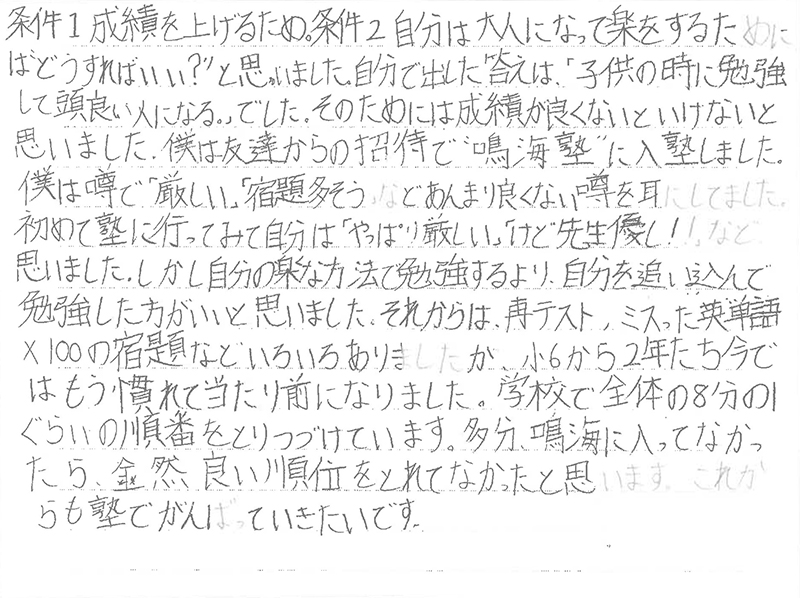 条件1 成績を上げるため。条件2 自分は大人になって楽をするために
はどうすればいい?"と思いました。自分で出した答えは、「子供の時に勉強
して頭良い人になる。」でした。そのためには成績が良くないといけないと
思いました。僕は友達からの招待で"鳴海塾"に入塾しました。
僕は噂で「厳しい」「宿題多そう」などあんまり良くない噂を耳にしてました。
初めて塾に行ってみて自分は「やっぱり厳しい」「けど先生優し!!」など
思いました。しかし自分の楽な方法で勉強するより、自分を追い込んで
勉強した方がいいと思いました。それからは、再テスト、ミスった英単語
×100の宿題などいろいろありましたが、小6から2年たち今で
はもう慣れて当たり前になりました。学校で全体の8分の1
ぐらいの順番をとりつづけています。多分、鳴海に入ってなかっ
たら、全然良い順位をとれてなかったと思います。これか
らも塾でがんばっていきたいです。